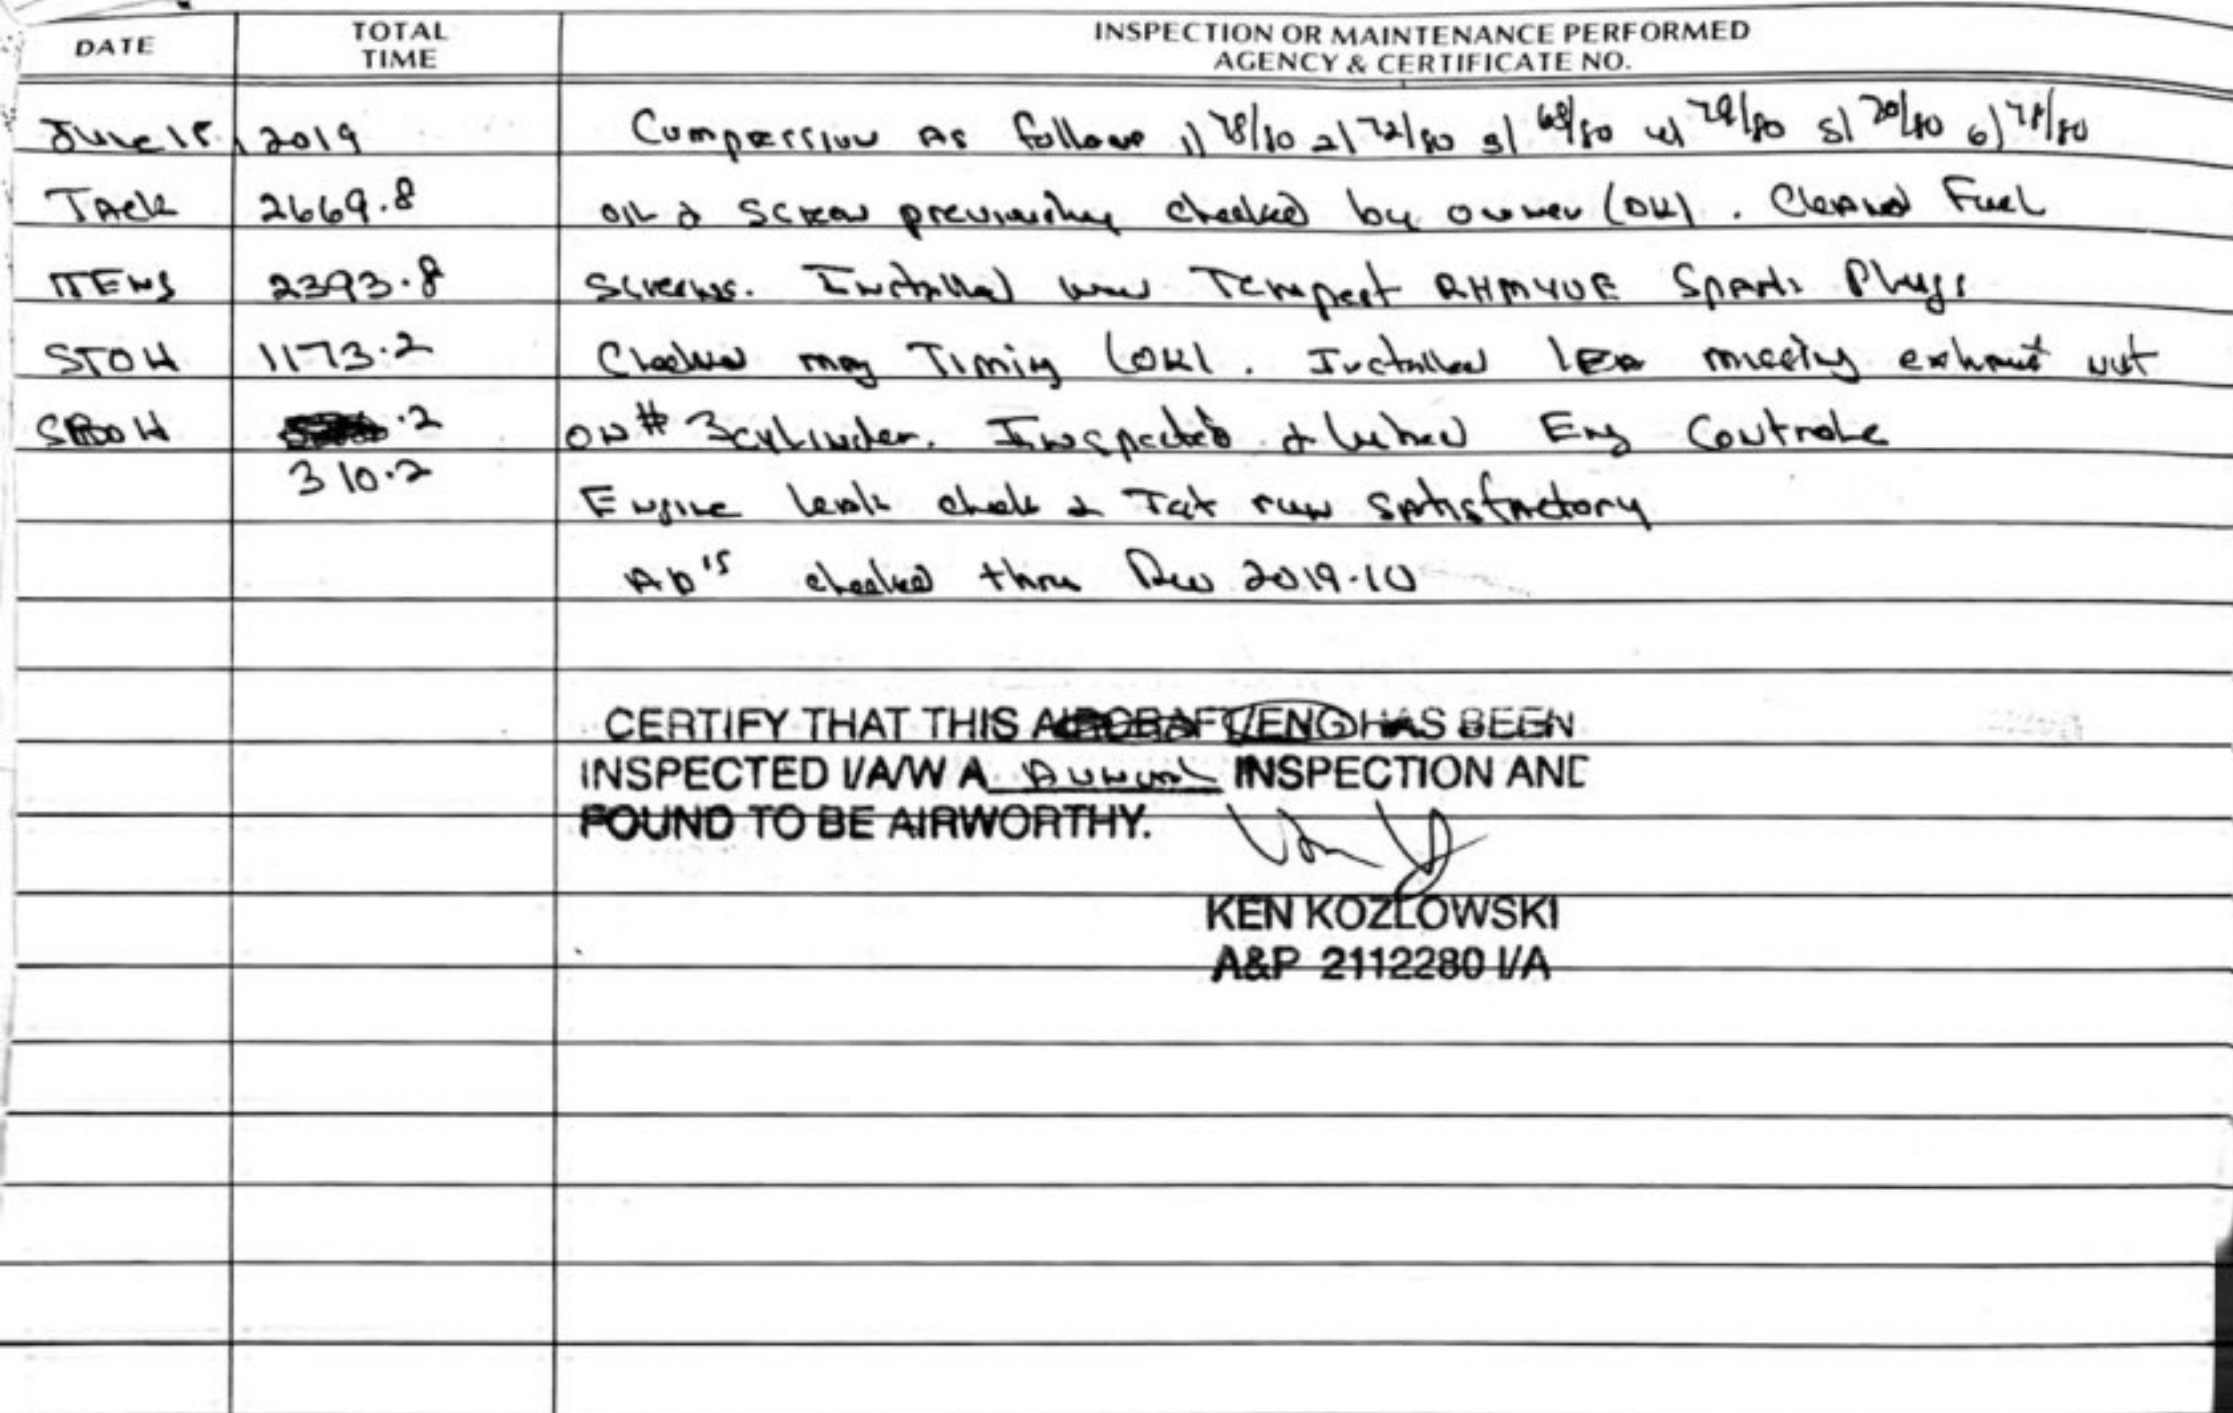 DATE TOTAL TIME INSPECTION OR MAINTENANCE PERFORMED AGENCY & CERTIFICATE NO.
June 15, 2019 Compression as follows 1) 78/80 2) 72/80 3) 68/80 4) 79/80 5) 70/80 6) 78/80
Tach 2669.8 oil & screen previously checked by owner (OK). Cleaned Fuel
TTENG 2393.8 screens. Installed new Tempest Spark Plugs
STOH 1173.2 Checked mag Timing (OK). Installed 1 ea missing exhaust nut
SBOH .2 on #3 cylinder. Inspected & lubed Eng Controls
310.2 Engine leak check & Test run satisfactory
AD's checked thru Rev 2019-10
CERTIFY THAT THIS AIRCRAFT/ENG HAS BEEN
INSPECTED I/A/W A Annual INSPECTION AND
FOUND TO BE AIRWORTHY.
KEN KOZLOWSKI
A&P 2112280 I/A